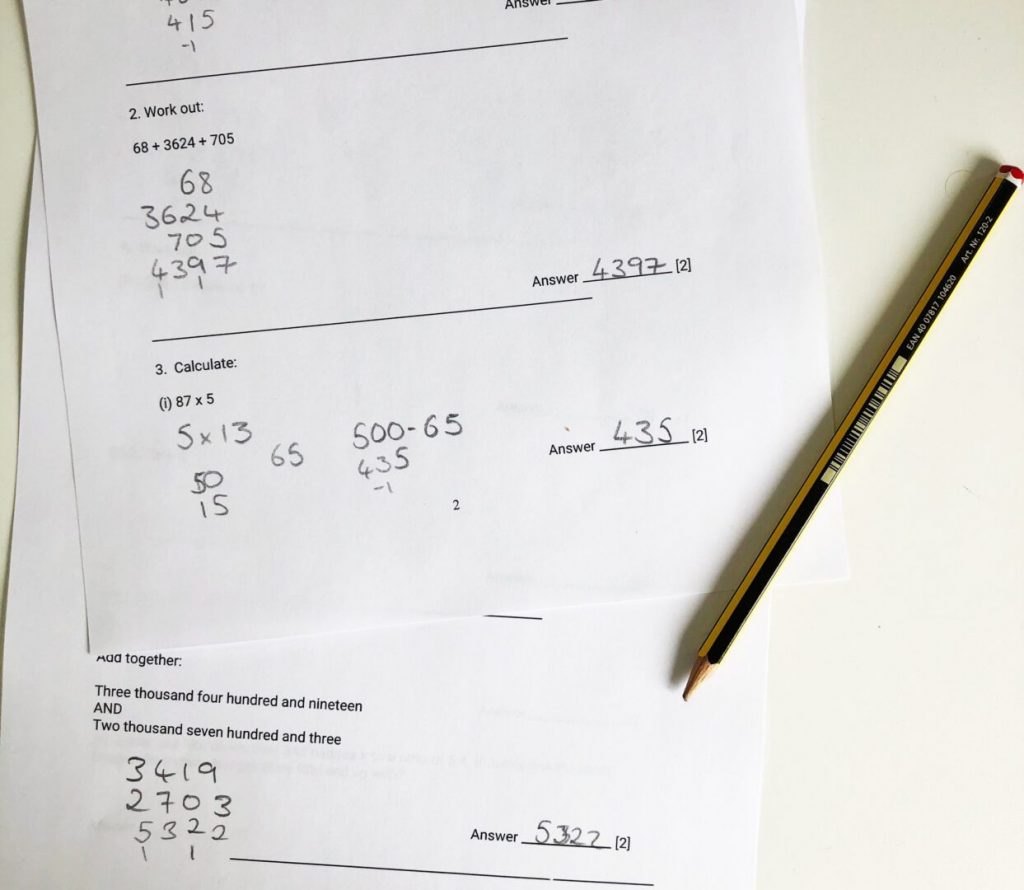 415
-1
Answer
2. Work out:
68 + 3624 + 705
68
3624
705
4397
1 1
Answer 4397 [2]
3. Calculate:
(i) 87 x 5
5 x 13
65
50
15
500-65
435
-1
Answer 435 [2]
2
Add together:
Three thousand four hundred and nineteen
AND
Two thousand seven hundred and three
3419
2703
5322
1 1
Answer 5322 [2]
Art. Nr. 120-2
EAN 40 07817 104620